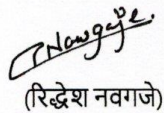 Nawgaje.
(रिद्धेश नवगजे)